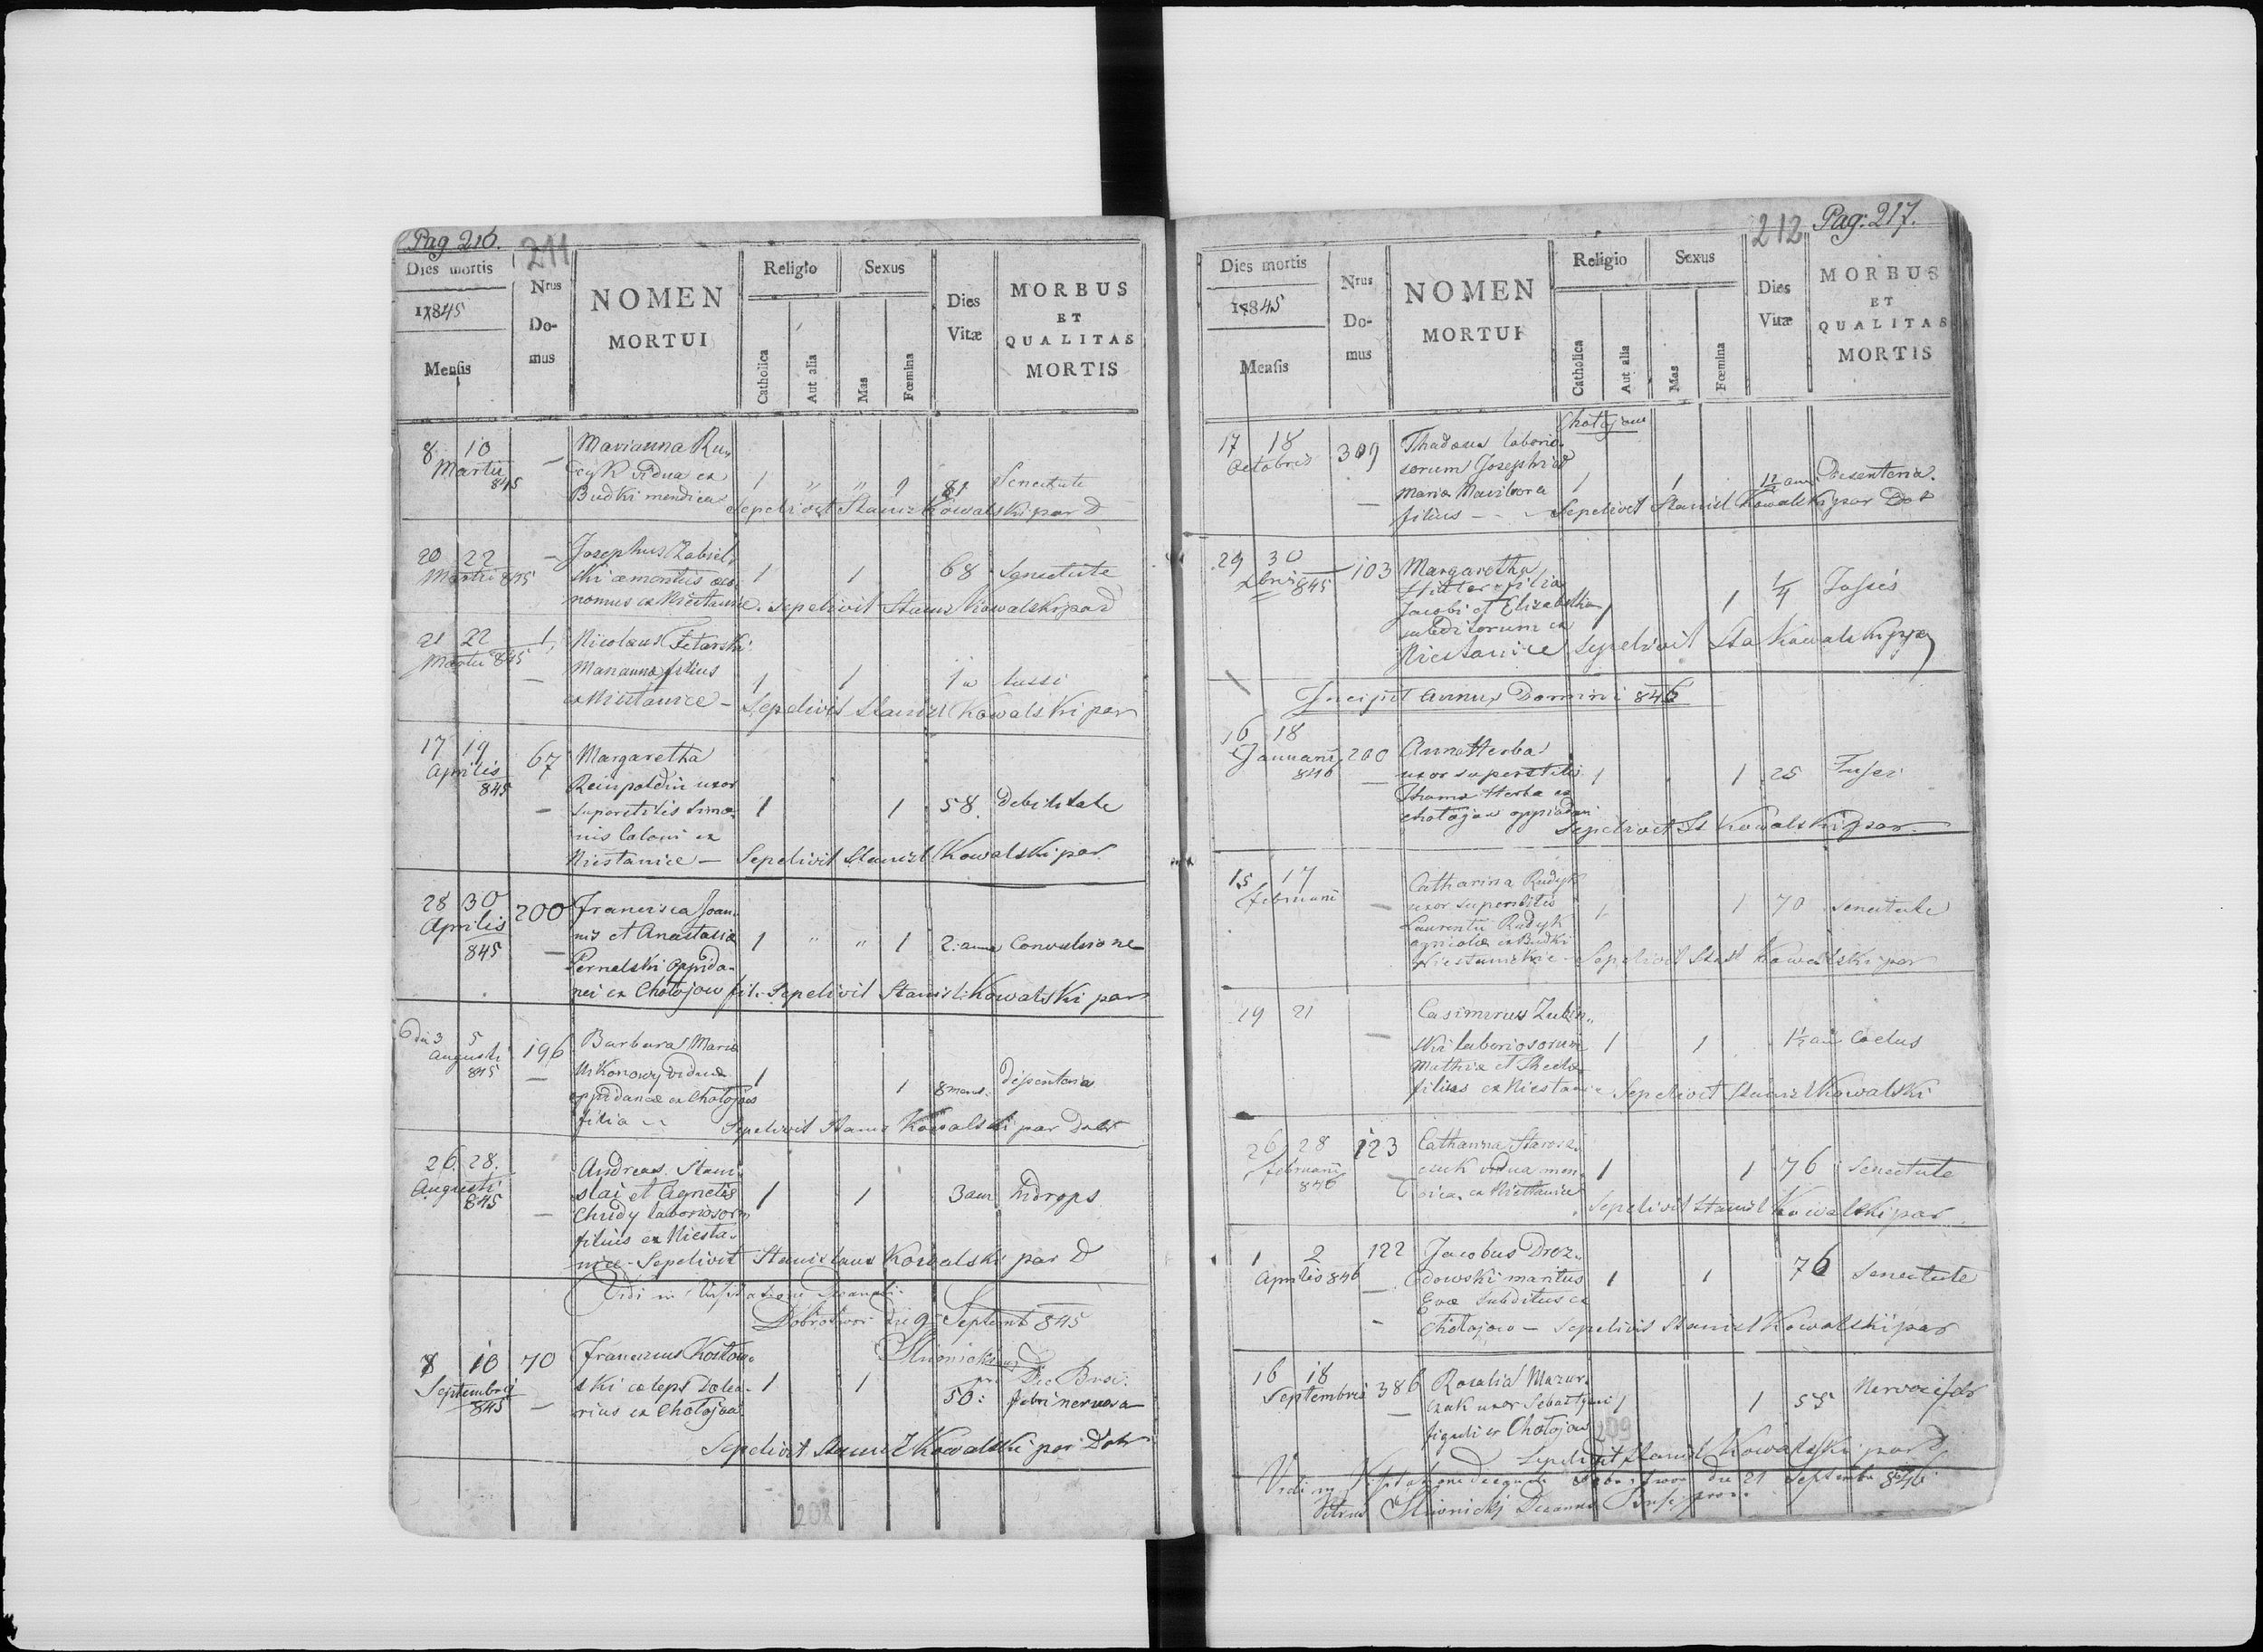 Pag 216
211
Dies mortis
1845
Mensis
Nrus
Do-
mus
NOMEN
MORTUI
Religio
Catholica
Aut alia
Sexus
Mas
Fœmina
Dies
Vitæ
MORBUS
ET
QUALITAS
MORTIS
8 10 Marianna Ru„
Martii
845
Budki mendica
1 „ „ 1 81 Senectute
Sepelivit Stanisl Kowalski par D
20 22 Josephus
Martii 845
1 1 68 Senectute
nomus ex Niestanice. Sepelivit Stanis Kowalski par D
21 22 1 Nicolaus
Martii 845
Marianna filius
1 1 1 a tussi
ex Niestanice – Sepelivit Stanisl Kowalski par
17 19 67 Margaretha
Aprilis
845
Reinpoldin uxor
superstitis Simo„
1 1 58. Debilitate
nis Coloni ex
Niestanice – Sepelivit Stanisl Kowalski par
28 30 200 Francisca Joan„
Aprilis
845
nis et Anastasia
1 „ „ 1 2. anno Convulsione
Pernalski oppida„
nei ex Chotojow fil. Sepelivit Stanisl. Kowalski par
3 5 196 Barbara Maria
Augusti
845
viduæ
1 1 8 mens. disenteria
oppidanæ ex Chotojow
filia –
Sepelivit Stanis Kowalski par Dobr
26. 28. Andreas Stani„
Augusti
845
slai et Agnetis
1 1 3 ann hidrops
Chudy laboriosorum
filius ex Niesta„
nice – Sepelivit Stanislaus Kowalski par D
Vidi in Visitatione Decanali
Dobrotwor die 9 Septemb 845
8 10 70 Franciscus Kostow„
Septembris
845
ski cœleps Dolea„
1 1 50: febri nervosa
rius ex Chotojow
Sepelivit Stanisl Kowalski par Dobr
202
212
Pag: 217.
Dies mortis
1845
Mensis
Nrus
Do-
mus
NOMEN
MORTUI
Religio
Catholica
Aut alia
Sexus
Mas
Fœmina
Dies
Vitæ
MORBUS
ET
QUALITAS
MORTIS
Chotojow
17 18 309 Thadæus laborio„
Octobris
sorum Josephi et
Maria
1 1 1½ ann Disenteria.
filius – – Sepelivit Stanisl Kowalski par Dob
29 30 103 Margaretha
845
filia
Jacobi et Elizabetha
1 1 ¼ Tussis
subditorum ex
Niestanice Sepelivit Sta Kowalski
Incipit Annus Domini 846
16 18 200 Anna Herba
Januarii
846
uxor superstitis
1 1 25 Tussi
Thoma Herba ex
Chotojow oppidani
Sepelivit St Kowalski par.
15 17 Catharina Rudyk
Februarii
uxor superstitis
1 1 70 senectute
Laurentii Rudyk
agricolæ ex Budki
Niestanickie – Sepelivit Stasl Kowalski par
19 21 Casimirus Zubin„
ski laboriosorum
1 1 1½ an
Mathiæ et Theclæ
filius ex Niestanice Sepelivit Stanisl Kowalski
26 28 123 Catharina Starosz„
Februarii
846
czuk vidua men„
1 1 76 Senectute
dica ex Niestanice
Sepelivit Stanisl Kowalski par
1 2 122 Jacobus Droz„
Aprilis 846
dowski maritus
1 1 76 Senectute
Evæ subditus ex
Chotojow – Sepelivit Stanisl Kowalski par
16 18 386 Rosalia Mazur„
Septembris
czak uxor Sebastyani
1 1 55
figuli ex Chotojow
209
Sepelivit Stanisl Kowalski par D
Vidi in Visitatione Dobrotwor die 21 Septembr 846
Petrus Decanus